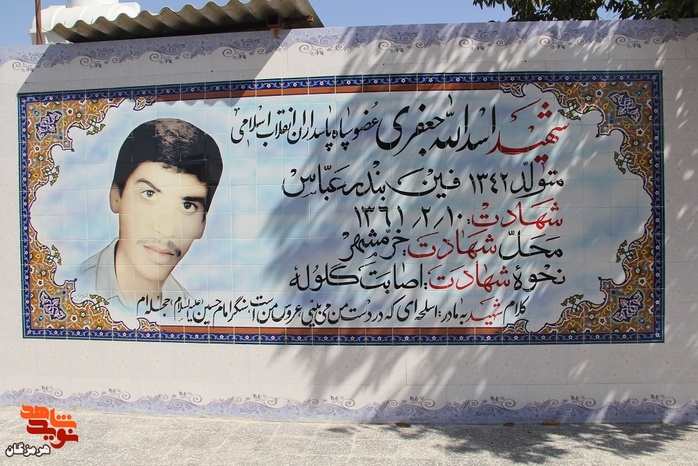 شهید اسدالله جعفری عضو سپاه پاسداران انقلاب اسلامی
متولد ۱۳۴۲ فین بندرعباس
شهادت: ۱۰/۲/۱۳۶۱
محل شهادت: خرمشهر
نحوهٔ شهادت: اصابت گلوله
کلام شهید به مادر: اسلحه ای که در دست من می بینی عروس من است سنگر امام حسین (علیه السلام) حجله ام
نوید شاهد
هرمزگان